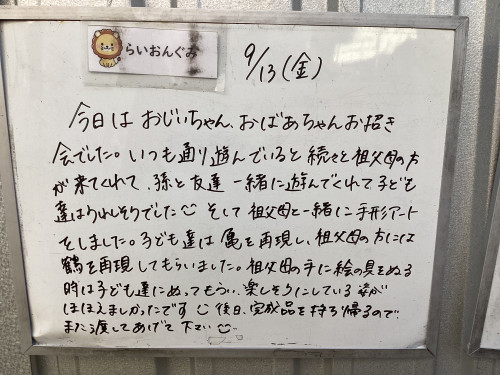 らいおんぐみ
9/13(金)
今日は おじいちゃん、おばあちゃんお招き
会でした。いつも通り遊んでいると 続々と祖父母の方
が来てくれて、孫と友達 一緒に遊んでくれて子ども
達はうれしそうでした そして 祖父母と一緒に手形アート
をしました。子ども達は 亀を再現し、祖父母の方には
鶴を再現してもらいました。祖父母の手に絵の具をぬる
時は子ども達にぬってもらい、楽しそうにしている 姿が
ほほえましかったです 後日、完成品を持ち帰るので
また渡してあげて下さい